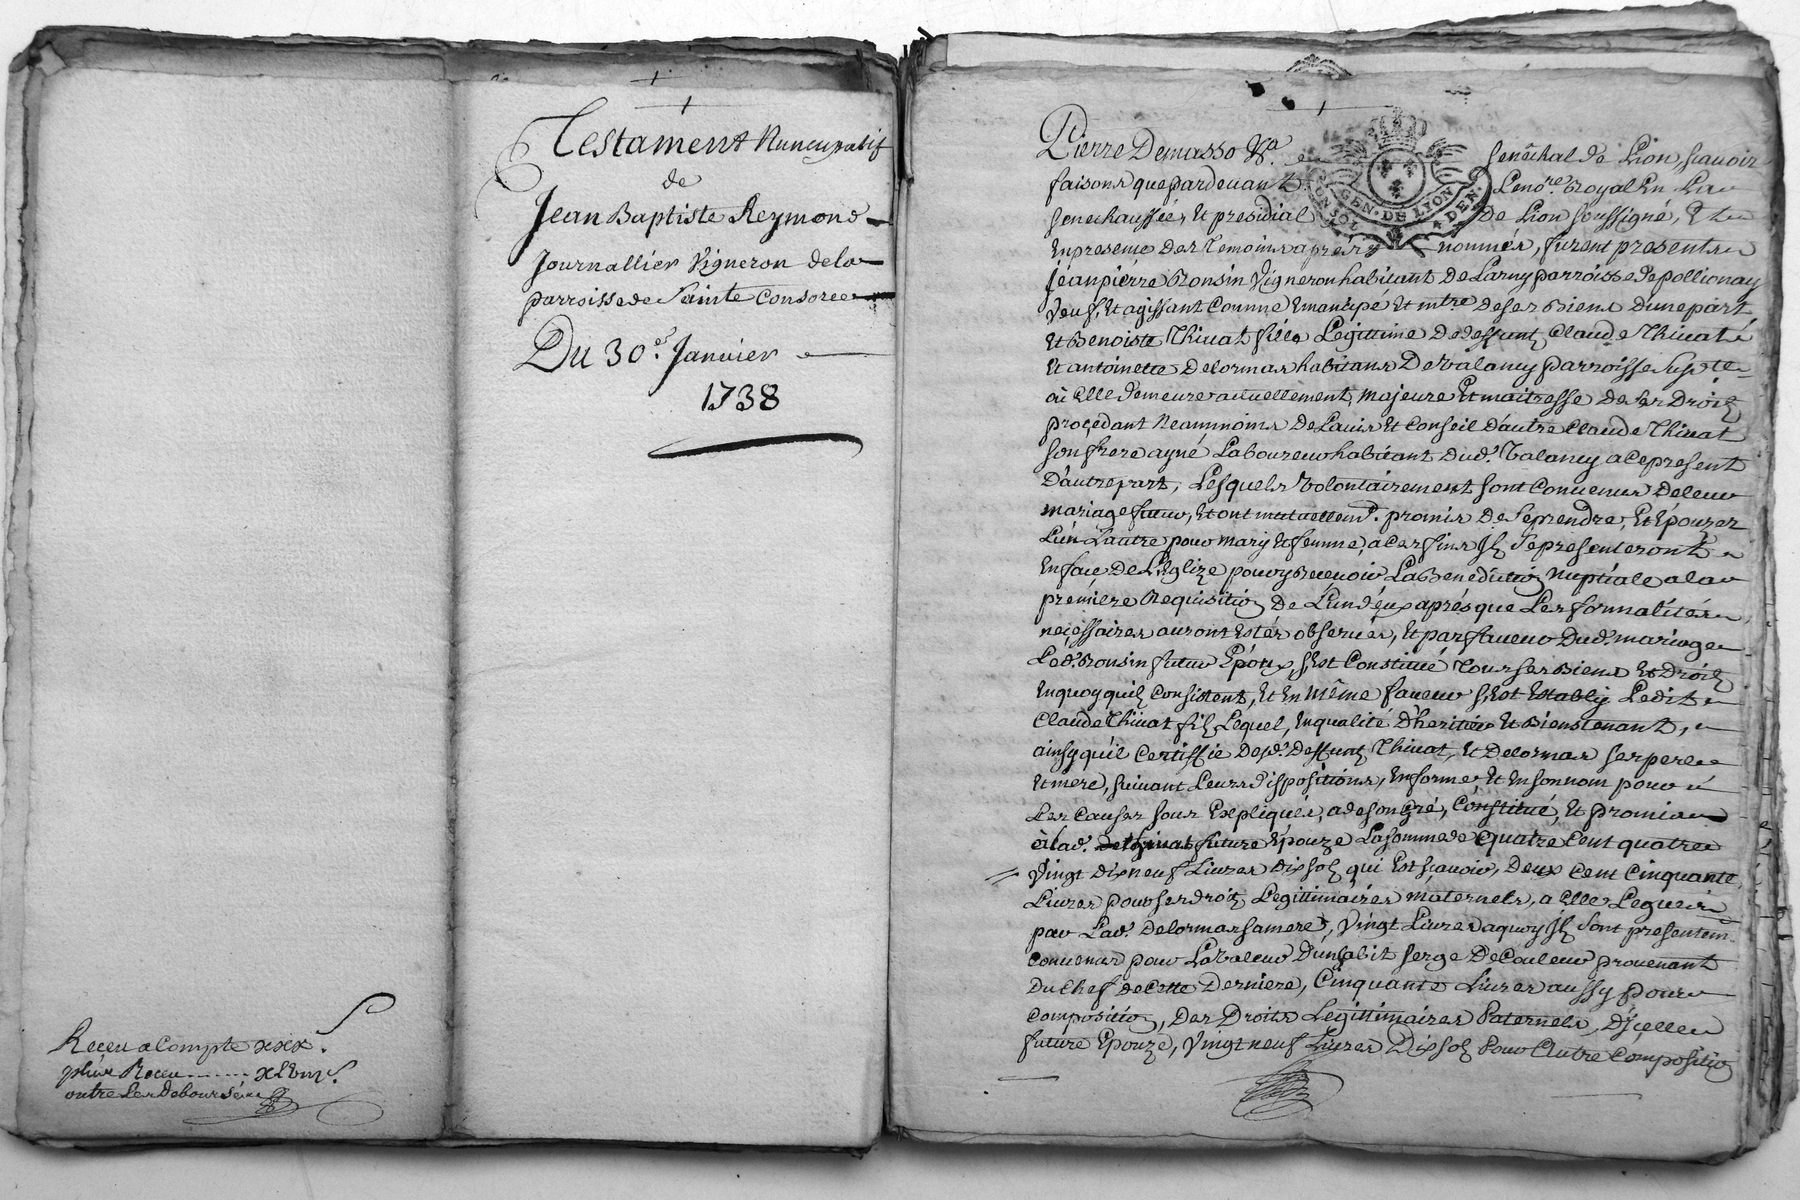 Testament Nuncupatif
de
Jean Baptiste Reymond
Journallier Vigneron dela
parroisse de Sainte Consorce
Du 30e. Janvier
1738
Receu a Compte xxx s.
plus Receu ....... xLviij s.
outre Les Deboursés
Pierre Demasso &a. senêchal de Lion scavoir
faisons que pardevant Le nore. Royal En La
senechaussée, Et presidial de Lion soussigné, Et
En presence des temoins apres nommés, furent presents
Jean pierre Ronsin Vigneron habitant de Larny parroisse de pollionay
Veuf, Et agissant Comme Emancipé Et mtre. de ses Biens d'une part,
Et Benoiste Thivat fille Legittime de deffunt Claude Thivat
Et antoinette Delormas habitans De Valancy parroisse
où Elle demeure actuellement, majeure Et maitresse de ses Droits
procedant Neanmoins De Lavis Et Conseil d'autre Claude Thivat
son frere ayné Laboureur habitant dud. Valancy a ce present
D'autre part, Lesquels Volontairement sont Convenus de leur
mariage futur, Et ont mutuellemt. promis De se prendre, Et Épouzer
L'un L'autre pour mary Et femme, a ces fins Ils se presenteront
En face De L'Eglize pour y Recevoir La Benediction Nuptiale a la
premiere Requisition de L'un d'eux aprés que Les formalités
necessaires auront Estés observées, Et par faveur Dud. mariage
Led. Ronsin futur Epoux, s'Est Constitué tous ses Biens Et Droits
En quoy quils Consistent, Et En même faveur s'Est Estably Ledit
Claude Thivat fils Lequel, En qualité d'heritier Et Bienstenant,
ainsy qu'il Certiffie Desd. Deffunts Thivat, Et Delormas ses pere
Et mere, suivant Leurs dispositions, En forme Et En son nom pour
Les Causes sous Expliquées, a de son Gré, Constitué, Et promis
à Lad. Thivat future Epouze La somme de Quatre Cent quatre
Vingt dix neuf Livres dix sols qui Est scavoir, Deux Cent Cinquante
Livres pour ses droits Legittimaires maternels, a Elle Legués
par Lad. Delormas sa mere, Vingt Livres a quoy Ils sont presentem.
Convenus pour La Valeur d'un habit serge De Couleur provenant
Du Chef de Cette Derniere, Cinquante Livres aussy pour
Composition, Des Droits Legittimaires Paternels, D'ycelle
future Epouze, Vingt neuf Livres Dix sols Pour Autre Composition